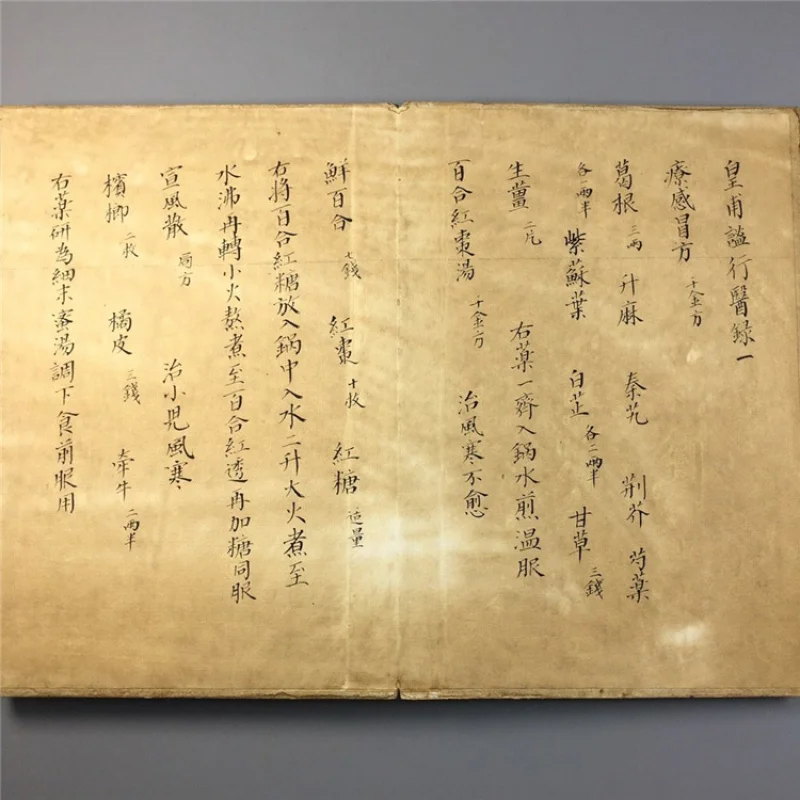 皇甫謐行醫錄一
療感冒方 十全方
葛根 三兩 升麻 秦艽 荆芥 芍藥
各一兩半 紫蘇葉 白芷 各一兩半 甘草 三錢
生薑 二片 右藥一齊入鍋水煎温服
百合紅棗湯 十全方 治風寒不愈
鮮百合 七錢 紅棗 十枚 紅糖 适量
右将百合紅糖放入鍋中入水二升大火煮至
水沸再轉小火熬煮至百合紅透再加糖同服
宣風散 局方 治小児風寒
檳榔 二枚 橘皮 三錢 牽牛 二兩半
右藥研為細末蜜湯調下食前服用